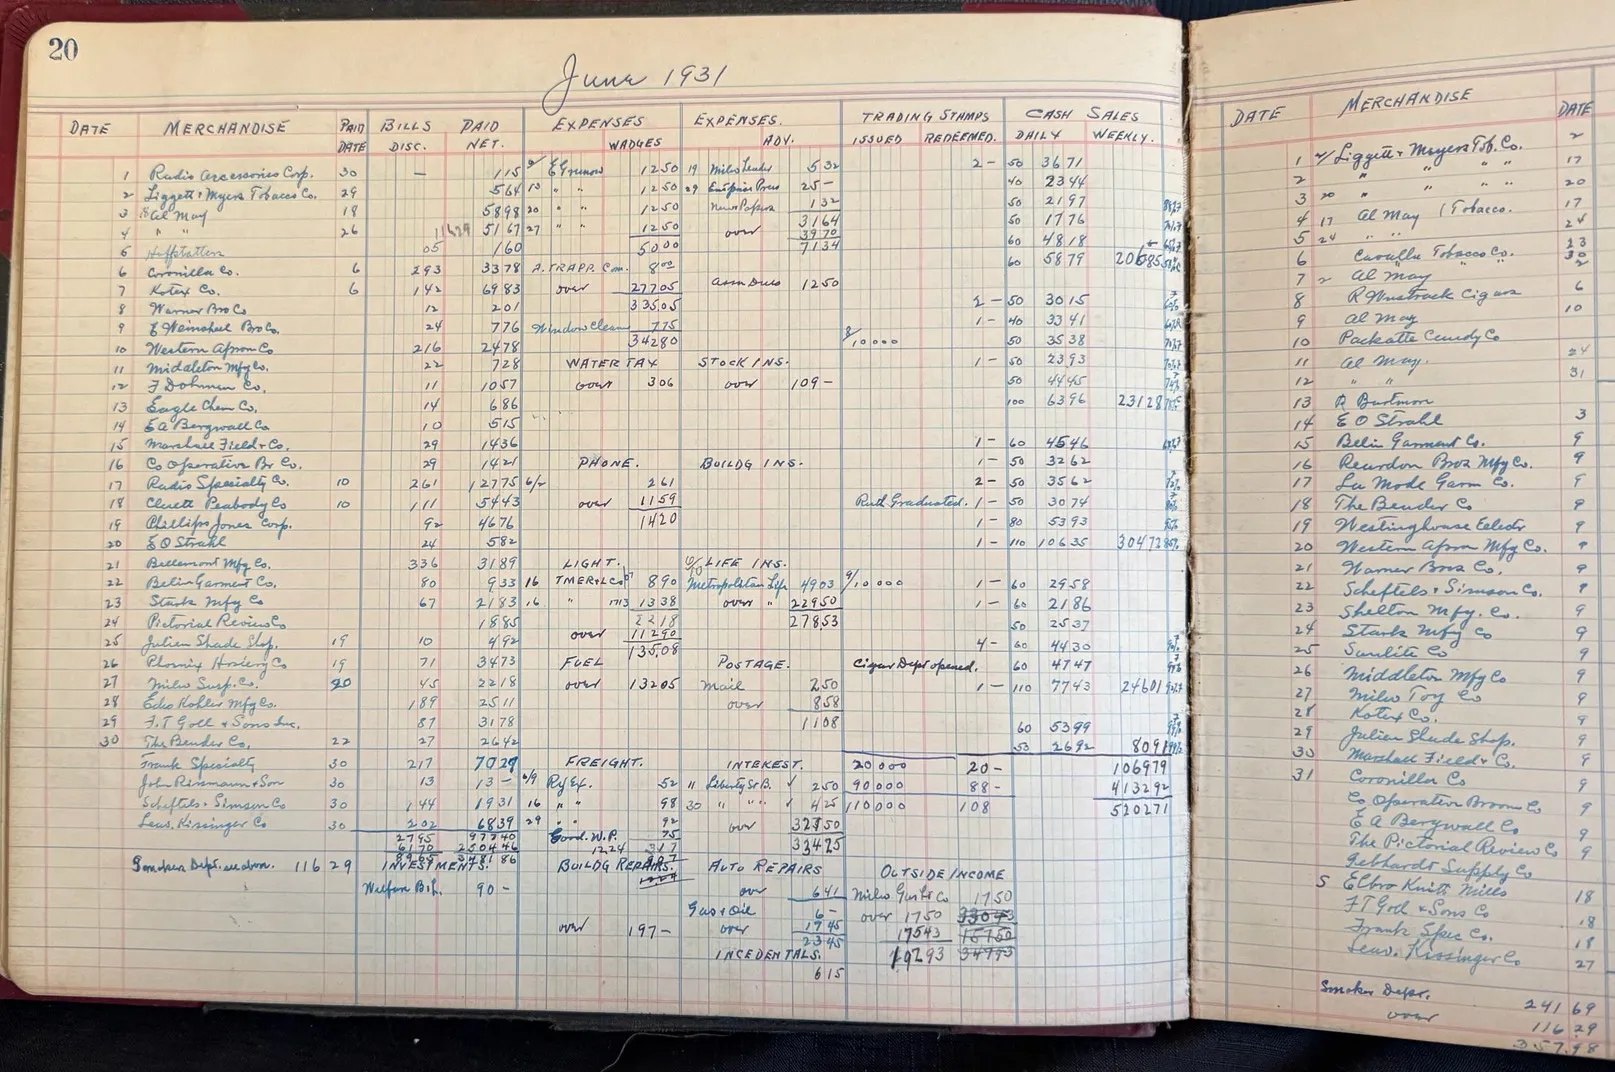 20
June 1931
DATE MERCHANDISE PAID DATE BILLS DISC. PAID NET. EXPENSES WADGES EXPENSES. ADV. TRADING STAMPS ISSUED REDEEMED. CASH SALES DAILY WEEKLY.
1 Radio Accessories Corp. 30 — 115 1250 19 Milw Leader 532 2 — 50 3671
2 Liggett & Myers Tobacco Co. 29 564 13 " " 1250 29 25 — 40 2344
3 Al May 18 5898 20 " " 1250 News Papers 132 50 2197
4 " " 26 5167 27 " " 1250 3164 50 1776
over 3970
5 Hoffstatten 05 160 5000 7134 60 4818
6 Coronilla Co. 6 293 3378 A. TRAPP. Com. 800 60 5879 20685
7 Kotex Co. 6 142 6983 over 27705 Assn Dues 1250
8 Warner Bro Co 12 201 33505 2 — 50 3015
9 E Weinshul Bro Co. 24 776 Window Clean 775 1 — 40 3341
10 Western Apron Co 216 2478 34280 8/ 10000 50 3538
11 Middleton Mfg Co. 22 728 WATER TAX STOCK INS. 1 — 50 2393
12 F Dohmen Co. 11 1057 over 306 over 109 — 50 4445
13 Eagle Chem Co. 14 686 100 6396 23128
14 E A Bergwall Co 10 515
15 Marshall Field & Co. 29 1436 1 — 60 4546
16 Co Operative Br Co. 29 1421 PHONE. BUILDG INS. 1 — 50 3262
17 Radio Specialty Co. 10 261 12775 6/2 261 2 — 50 3562
18 Cluett Peabody Co 10 111 5443 over 1159 Ruth Graduated. 1 — 50 3074
19 Phillips Jones Corp. 92 4676 1420 1 — 80 5393
20 E O Strahl 24 582 1 — 110 10635 30472
21 Bellemont Mfg Co. 336 3189 LIGHT. LIFE INS.
22 Belin Garment Co. 80 933 16 TMER & L Co 890 Metropolitan Life 4903 9/ 10000 1 — 60 2958
23 Stark Mfg Co 67 2183 16 " 1713 1338 over " 22950 1 — 60 2186
24 Pictorial Review Co 1885 2218 27853 50 2537
25 Julien Shade Shop. 19 10 492 over 11290 4 — 60 4430
13508
26 Phoenix Hosiery Co 19 71 3473 FUEL POSTAGE. Cigar Dept opened. 60 4747
27 Milw Surp. Co. 20 45 2218 over 13205 Mail 250 1 — 110 7743 24601
28 Edw Kohler Mfg Co. 189 2511 over 858
29 F. T Goll & Sons Inc. 87 3178 1108 60 5399
30 The Bender Co. 22 27 2642 50 2692 8091
Frank Specialty 30 217 7029 FREIGHT. INTEREST. 20000 20 — 106979
John Rissmann & Son 30 13 13 — 6/9 Ry Ex. 52 " Liberty St B. ✓ 250 90000 88 — 413292
Scheftels & Simson Co 30 144 1931 16 " " 98 30 " " " ✓ 425 110000 108 520271
Leas. Kissinger Co 30 202 6839 29 " " 92 over 32750
2795 97740 Good. W.P. 75 33425
6170 250446 1224 317
8965 348186
Smoker Dept. see above. 116 29 INVESTMENTS. BUILDG REPAIRS. AUTO REPAIRS OUTSIDE INCOME
90 — over 641 Milw Gas Lt Co 1750
Gas & Oil 6 — over 1750
over 197 — over 1745 17543
2345 19293
INCEDENTALS.
615
DATE MERCHANDISE DATE
1 2/ Liggett & Meyers Tob. Co. 2
2 " " " 17
3 20 " " " 20
4 17 Al May (Tobacco. 17
5 24 " " 24
6 Tobacco Co. 23
7 2 Al May 2
8 R Wustrack Cigars 6
9 Al May 10
10 Packatte Candy Co
11 Al May. 24
12 " " 31
13 R Burtman
14 E O Strahl 3
15 Belin Garment Co. 9
16 Reardon Bros Mfg Co. 9
17 La Mode Garm Co. 9
18 The Bender Co 9
19 Westinghouse Electr 9
20 Western Apron Mfg Co. 9
21 Warner Bros Co. 9
22 Scheftels & Simson Co. 9
23 Shelton Mfg. Co. 9
24 Stark Mfg Co 9
25 Sunlite Co 9
26 Middleton Mfg Co 9
27 Milw Toy Co 9
28 Kotex Co. 9
29 Julien Shade Shop. 9
30 Marshall Field & Co. 9
31 Coronilla Co 9
Co Operative Broom Co 9
E A Bergwall Co 9
The Pictorial Review Co 9
Gebhardt Supply Co
5 Elbro Knitt Mills 18
F T Goll & Sons Co 18
Frank Spec Co. 18
Leas. Kissinger Co 27
Smoker Dept. 241 69
over 116 29
357.98